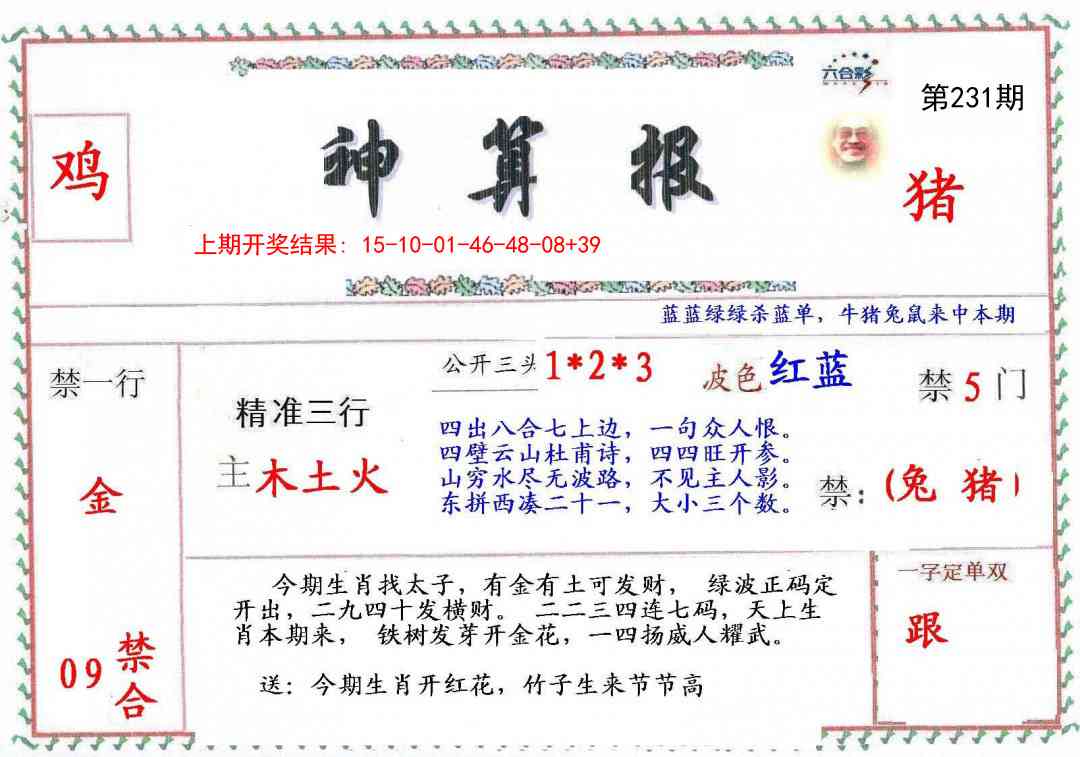 六合彩
第231期
鸡
神算报
猪
上期开奖结果：15-10-01-46-48-08+39
蓝蓝绿绿杀蓝单，牛猪兔鼠来中本期
禁一行
金
09
禁合
精准三行
主木土火
公开三头 1*2*3
波色 红蓝
四出八合七上边，一句众人恨。
四壁云山杜甫诗，四四旺开参。
山穷水尽无波路，不见主人影。
东拼西凑二十一，大小三个数。
禁5门
禁：(兔 猪)
今期生肖找太子，有金有土可发财， 绿波正码定
开出，二九四十发横财。 二二三四连七码，天上生
肖本期来， 铁树发芽开金花，一四扬威人耀武。
送：今期生肖开红花，竹子生来节节高
一字定单双
跟